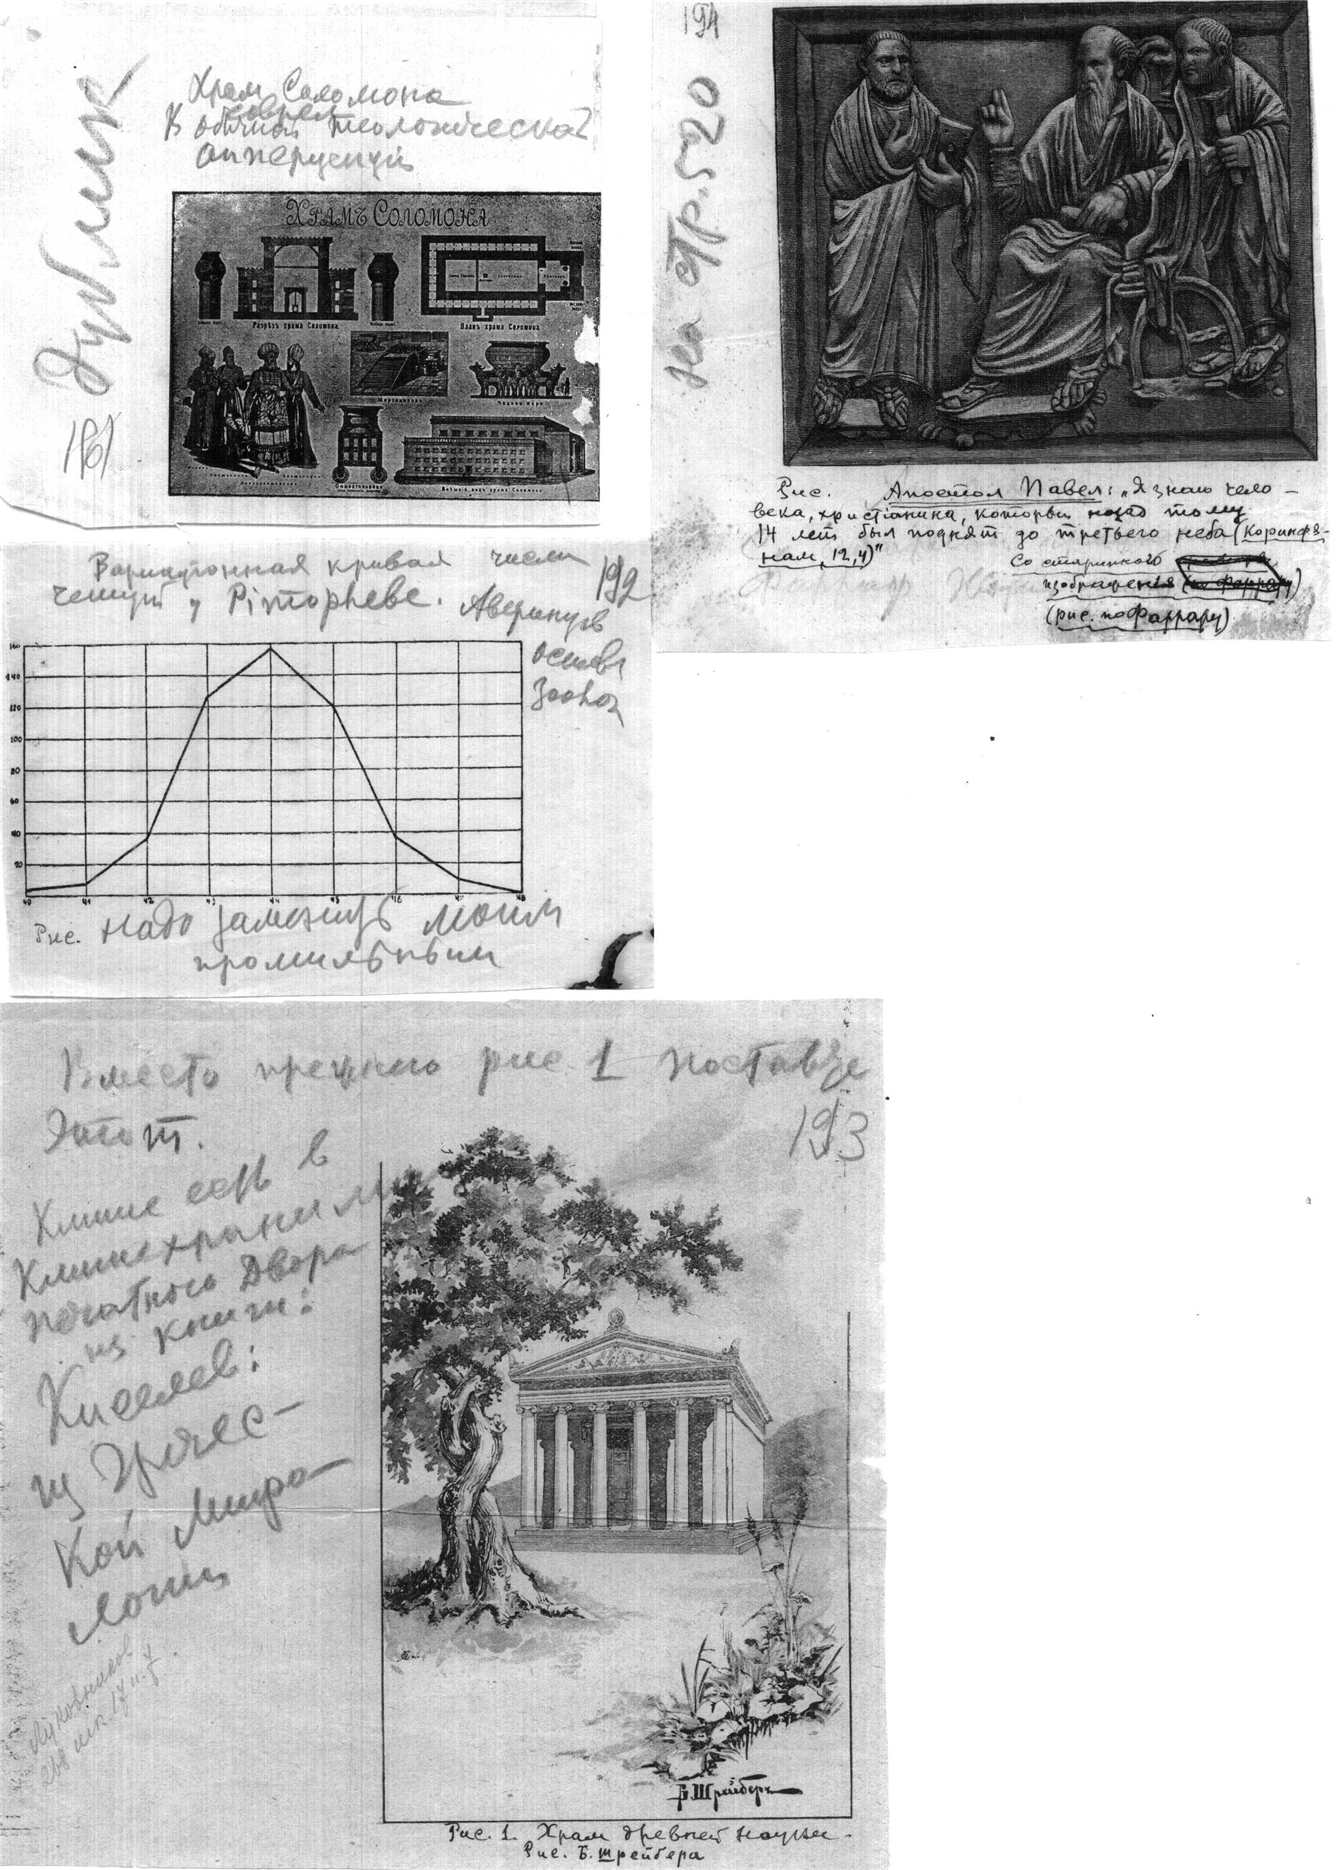 Дубликат
191
Храм Соломона
в обычной теологической
ХРАМЪ СОЛОМОНА
Разрѣзъ храма Соломона.
Планъ храма Соломона.
Жертвенникъ.
Мѣдное море.
Умывальница
Внѣшній видъ храма Соломона
194
на стр. 520
Рис. Апостол Павел: „Я знаю чело-
века, христианина, который назад тому
14 лет был поднят до третьего неба (Коринфя-
нам, 12,4)"
Со старинного
изображения (по Фаррару)
(рис. по Фаррару)
Вариационная кривая числа
чешуй у Pimopheвe.
192
Аверинцев
основы
зоолог
160
140
120
100
80
60
40
20
40 41 42 43 44 45 46 47 48
Рис. Надо заменить моим
Вместо прежнего рис. 1 поставьте
этот.
193
Клише есть в
Клишехранилище
Печатного Двора
из книги:
Киселев:
из Гречес-
кой Мифо-
логии
Б. Шрейберъ
Рис. 1. Храм древней науки.
Рис. Б. Шрейбера